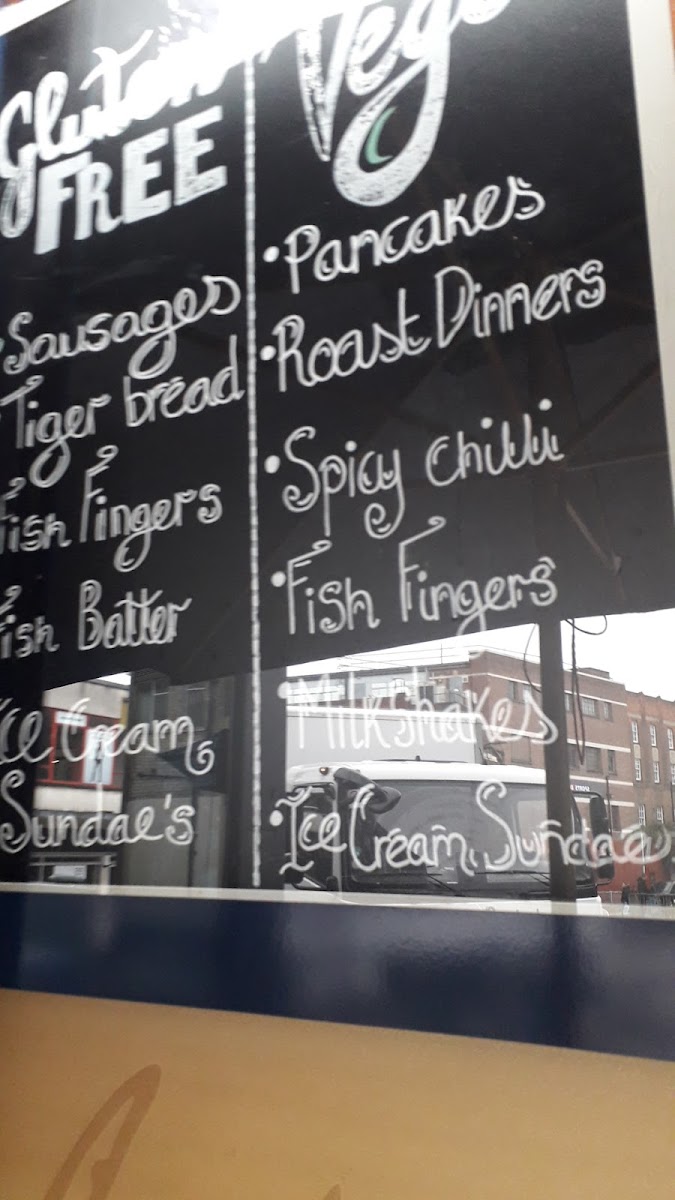 Gluten
FREE
Sausages
Tiger bread
Fish Fingers
Fish Batter
Ice Cream
Sundae's
• Pancakes
• Roast Dinners
• Spicy chilli
• Fish Fingers
• Milkshakes
• Ice Cream Sundaes